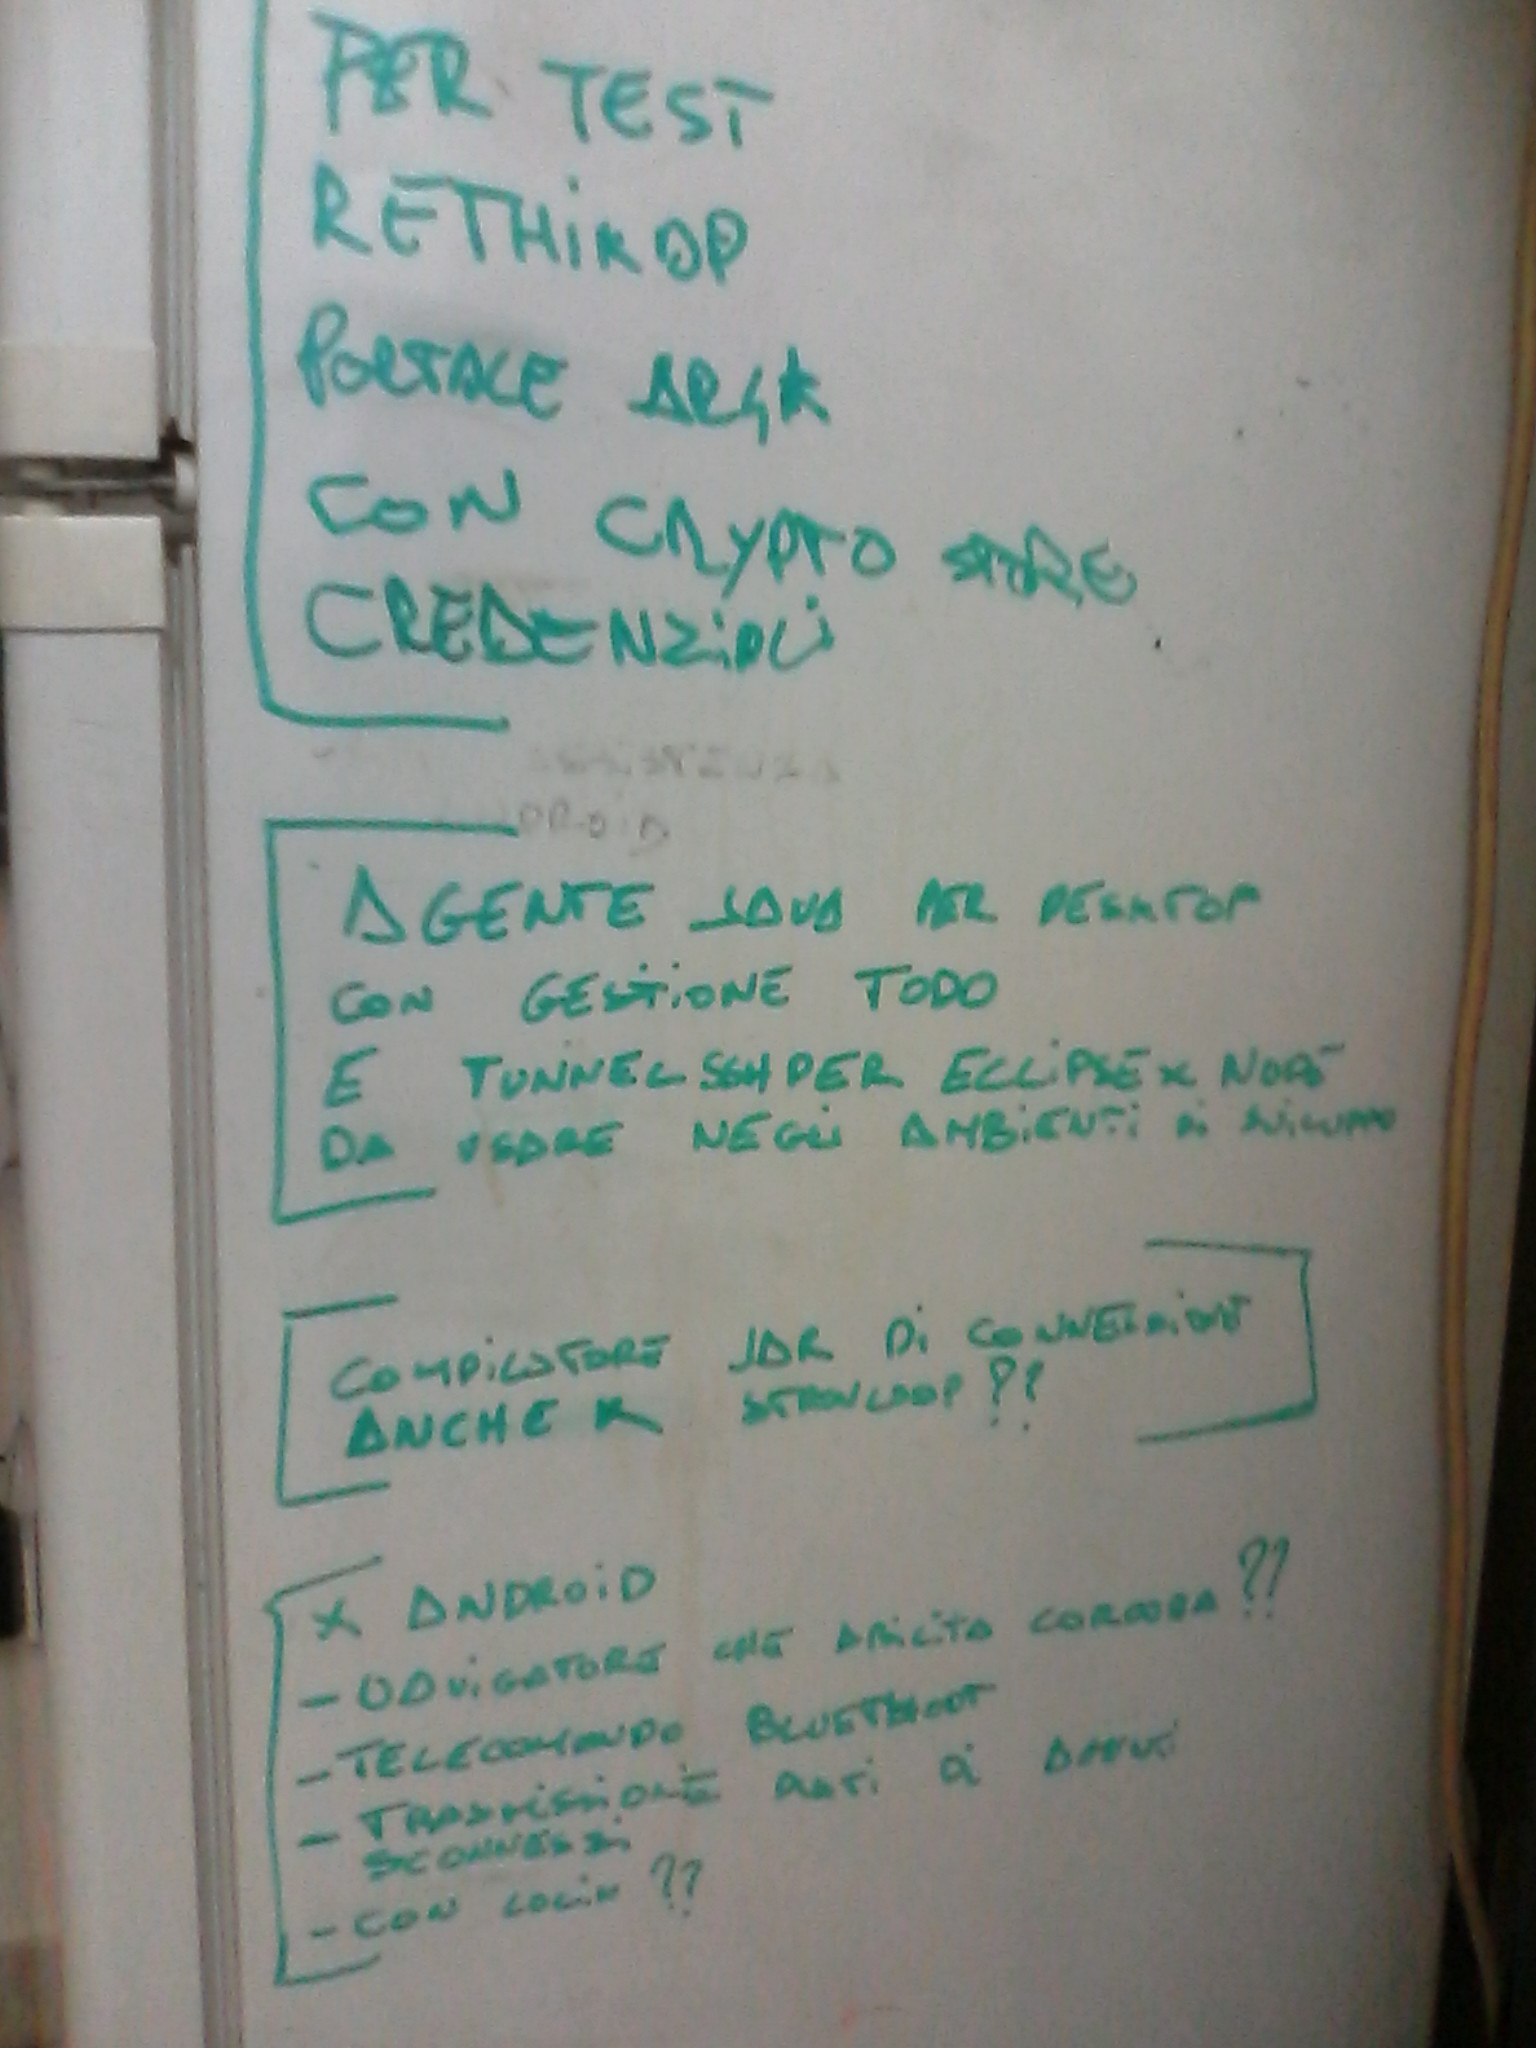 PER TEST
RETHINKDP
PORTALE
CON CRYPTO STORE
CREDENZIALI
ASSISTENZA
DROID
AGENTE JAVA PER DESKTOP
CON GESTIONE TODO
E TUNNEL SSH PER ECLIPSE X NODE
DA USARE NEGLI AMBIENTI DI SVILUPPO
COMPILATORE JAR DI CONNESSIONE
ANCHE X STRONLOOP??
X ANDROID
- NAVIGATORE CHE ABILITA CORDOVA??
- TELECOMANDO BLUETHOOT
- TRASMISSIONE DATI DI
SCONNESSI
- CON LOGIN ??